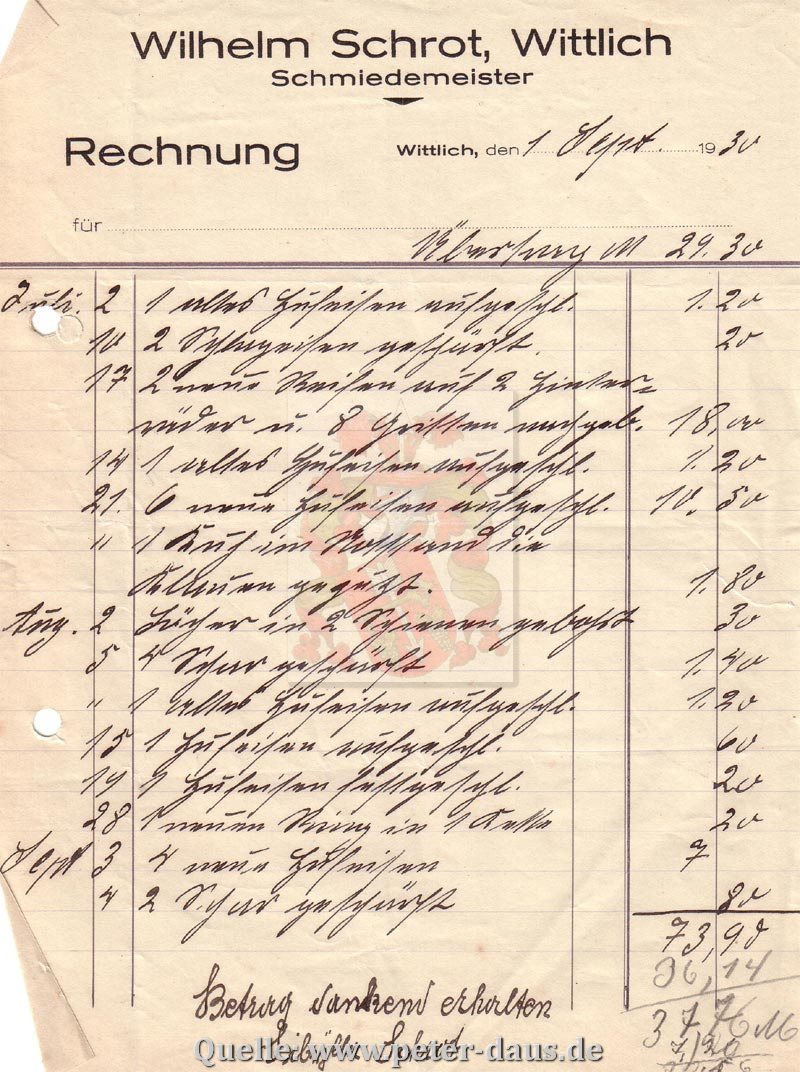 Wilhelm Schrot, Wittlich
Schmiedemeister
Rechnung
Wittlich, den 1 Sept. 1930
für
Übertrag M 29.30
Juli. 2 1 altes Hufeisen aufgeschl. 1.20
10 2 Schlageisen geschärft. 20
17 2 neue Reifen auf 2 Hinter=
räder u. 8 nachgeb. 18,00
14 1 altes Hufeisen aufgeschl. 1.20
21. 6 neue Hufeisen aufgeschl. 10.50
" 1 Kuh im Notstand die
Klauen geputzt. 1.80
Aug. 2 Löcher in 2 Schienen gebohrt 30
5 4 Schar geschärft 1.40
" 1 altes Hufeisen aufgeschl. 1.20
15 1 Hufeisen aufgeschl. 60
19 1 Hufeisen festgeschl. 20
28 1 neuen Ring in 1 Kette 20
Sept 3 4 neue Hufeisen 7
4 2 Schar geschärft 80
73,90
36,14
37,76 M
7,20
Betrag dankend erhalten
Schrot
Quelle: www.peter-daus.de